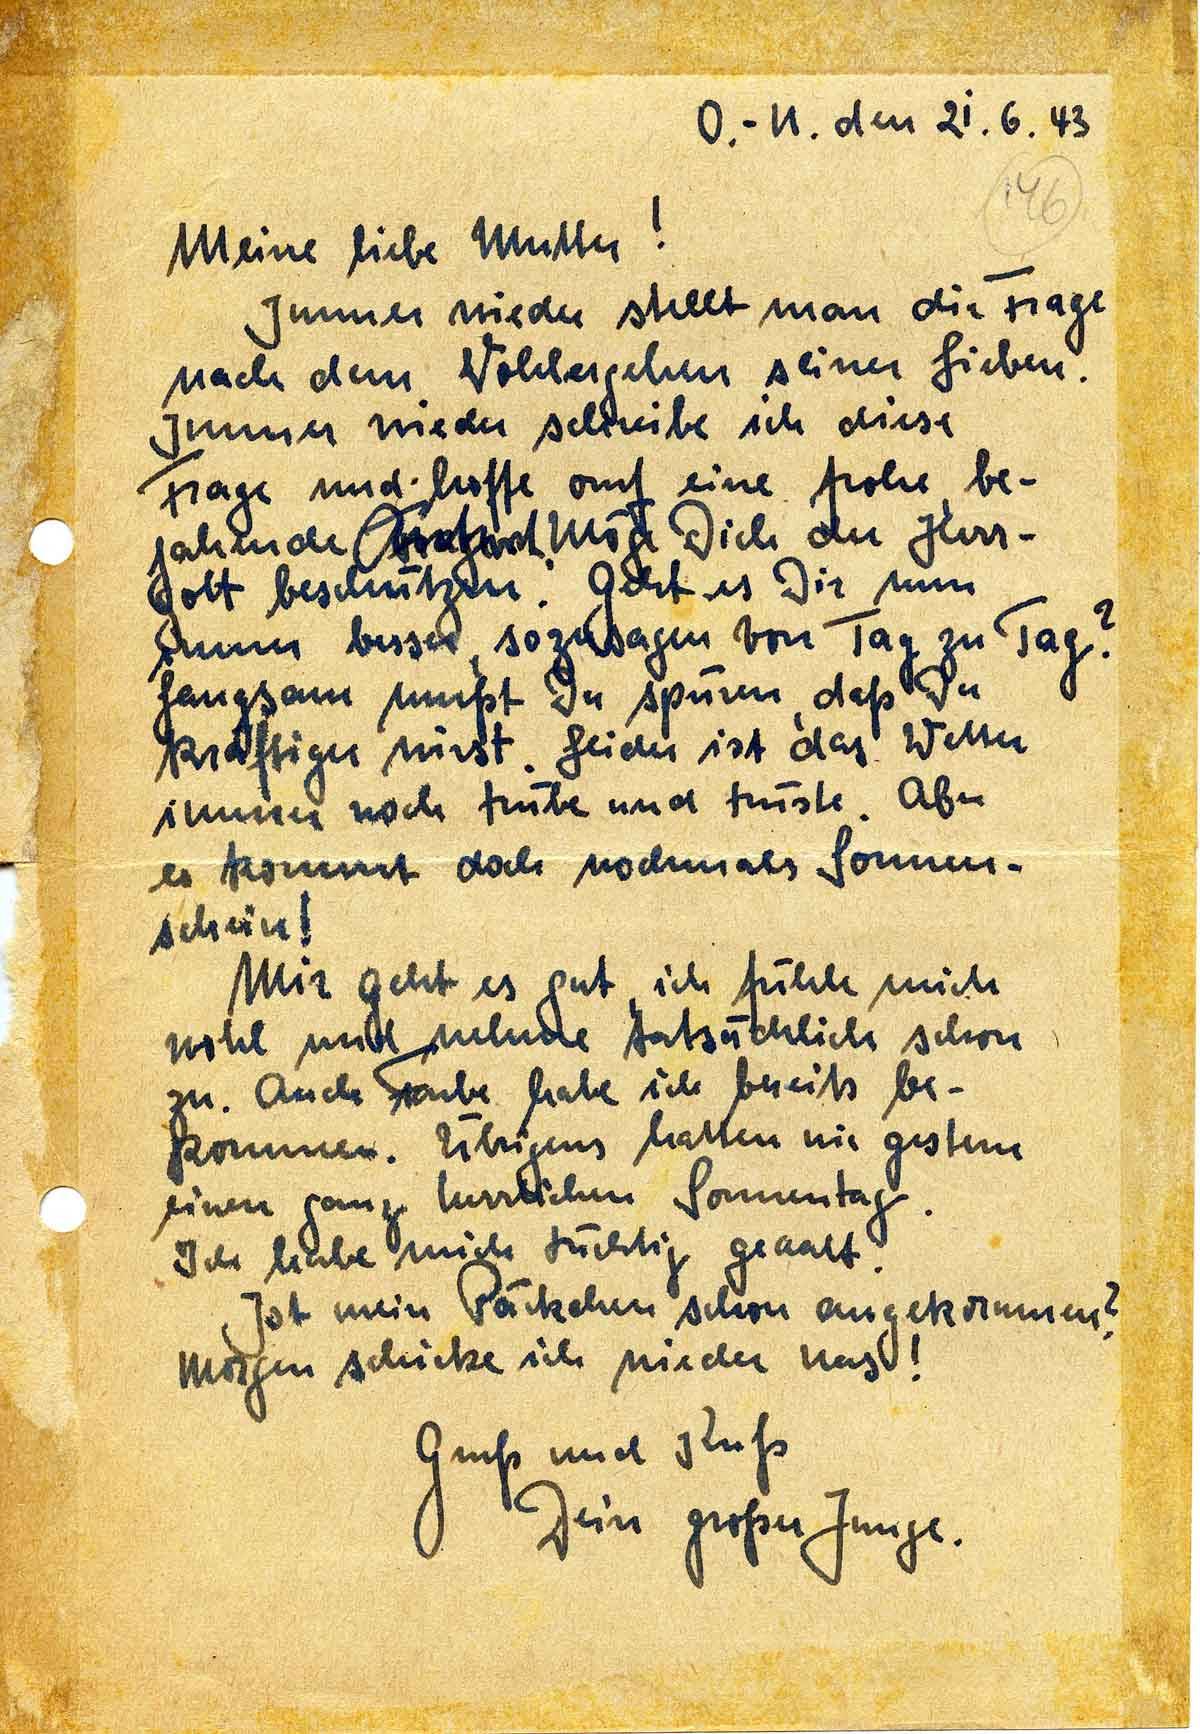 O.-U. den 21.6.43
146
Meine liebe Mutter!
Immer wieder stellt man die Frage
nach dem Wohlergehen seiner Lieben.
Immer wieder schreibe ich diese
Frage und hoffe auf eine frohe be-
jahende Antwort. Mög Dich der Herr-
gott beschützen. Geht es Dir nun
immer besser, sozusagen von Tag zu Tag?
Langsam mußt Du spüren, daß Du
kräftiger wirst. Leider ist das Wetter
immer noch trübe und triste. Aber
es kommt doch nochmals Sonnen-
schein!
Mir geht es gut, ich fühle mich
wohl und nehme tatsächlich schon
zu. Auch Farbe habe ich bereits be-
kommen. Übrigens hatten wir gestern
einen ganz herrlichen Sonnentag.
Ich habe mich tüchtig geaalt.
Ist mein Päckchen schon angekommen?
Morgen schicke ich wieder was!
Gruß und Kuß
Dein großer Junge.